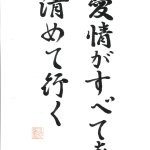 愛情がすべてを
清めて行く